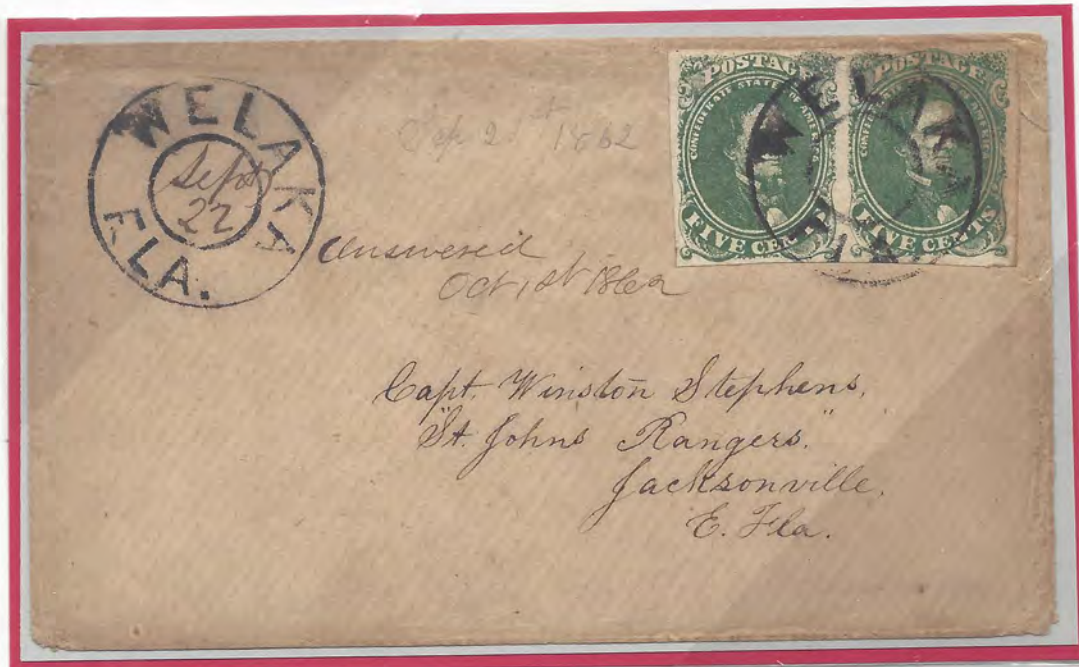 WELAKA
Sept
22
FLA.
Sep 2 st 1862
POSTAGE
CONFEDERATE STATES OF AMERICA
FIVE CENTS
POSTAGE
CONFEDERATE STATES OF AMERICA
FIVE CENTS
WELAKA
FLA.
Answered
Oct 1st 1862
Capt. Winston Stephens,
"St. Johns Rangers."
Jacksonville,
E. Fla.